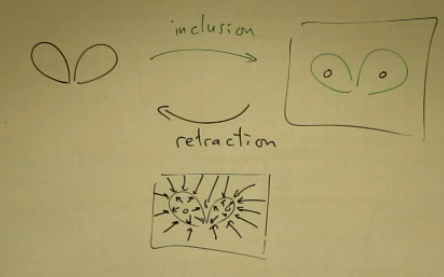 inclusion
retraction